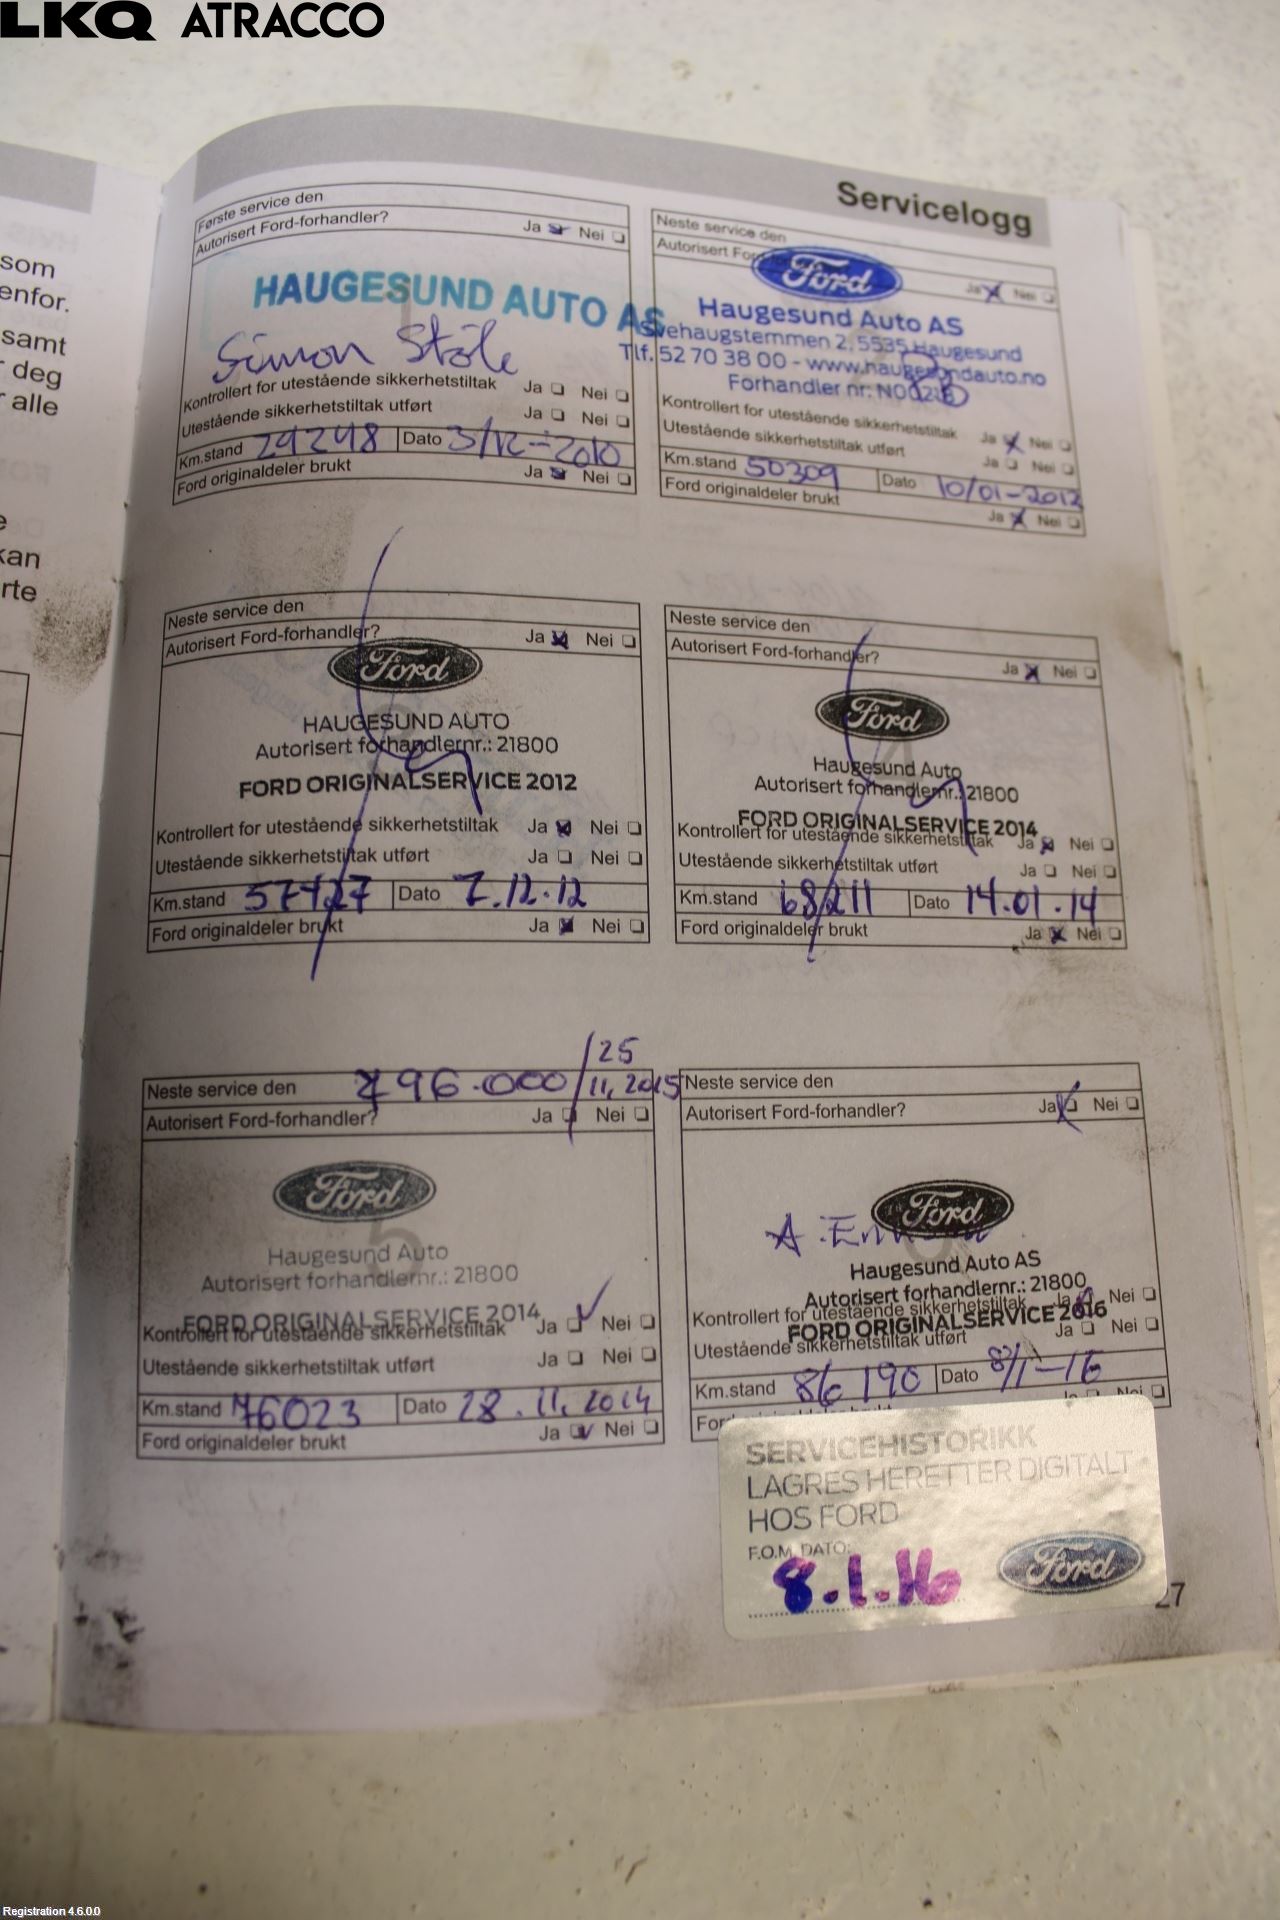 LKQ ATRACCO
som
enfor.
samt
deg
alle
kan
rte
Servicelogg
Første service den
Autorisert Ford-forhandler? Ja Nei
HAUGESUND AUTO AS
Simon Støle
Kontrollert for utestående sikkerhetstiltak Ja Nei
Utestående sikkerhetstiltak utført Ja Nei
Km.stand 29248 Dato 3/12-2010
Ford originaldeler brukt Ja Nei
Neste service den
Autorisert Ja Nei
Ford
Haugesund Auto AS
Svehaugstemmen 2, 5535 Haugesund
Tlf. 52 70 38 00 - www.haugesundauto.no
Forhandler nr:
Kontrollert for utestående sikkerhetstiltak Ja Nei
Utestående sikkerhetstiltak utført Ja Nei
Km.stand 50309 Dato 10/01-2012
Ford originaldeler brukt
Ja Nei
Neste service den
Autorisert Ford-forhandler? Ja Nei
Ford
HAUGESUND AUTO
Autorisert forhandlernr.: 21800
FORD ORIGINALSERVICE 2012
Kontrollert for utestående sikkerhetstiltak Ja Nei
Utestående sikkerhetstiltak utført Ja Nei
Km.stand 57427 Dato 7.12.12
Ford originaldeler brukt Ja Nei
Neste service den
Autorisert Ford-forhandler? Ja Nei
Ford
4
Haugesund Auto
Autorisert forhandlernr.: 21800
FORD ORIGINALSERVICE 2014
Kontrollert for utestående sikkerhetstiltak Ja Nei
Utestående sikkerhetstiltak utført Ja Nei
Km.stand 68211 Dato 14.01.14
Ford originaldeler brukt Ja Nei
25
Neste service den 96.000 / 11, 2015
Autorisert Ford-forhandler? Ja Nei
Ford
5
Haugesund Auto
Autorisert forhandlernr.: 21800
FORD ORIGINALSERVICE 2014
Kontrollert for utestående sikkerhetstiltak Ja Nei
Utestående sikkerhetstiltak utført Ja Nei
Km.stand 76023 Dato 28.11.2014
Ford originaldeler brukt Ja Nei
Neste service den
Autorisert Ford-forhandler? Ja Nei
Ford
Haugesund Auto AS
Autorisert forhandlernr.: 21800
Kontrollert for utestående sikkerhetstiltak Ja Nei
FORD ORIGINALSERVICE 2016
Utestående sikkerhetstiltak utført Ja Nei
Km.stand 86190 Dato 8/1-16
SERVICEHISTORIKK
LAGRES HERETTER DIGITALT
HOS FORD
F.O.M. DATO:
8.1.16
Ford
27
Registration 4.6.0.0